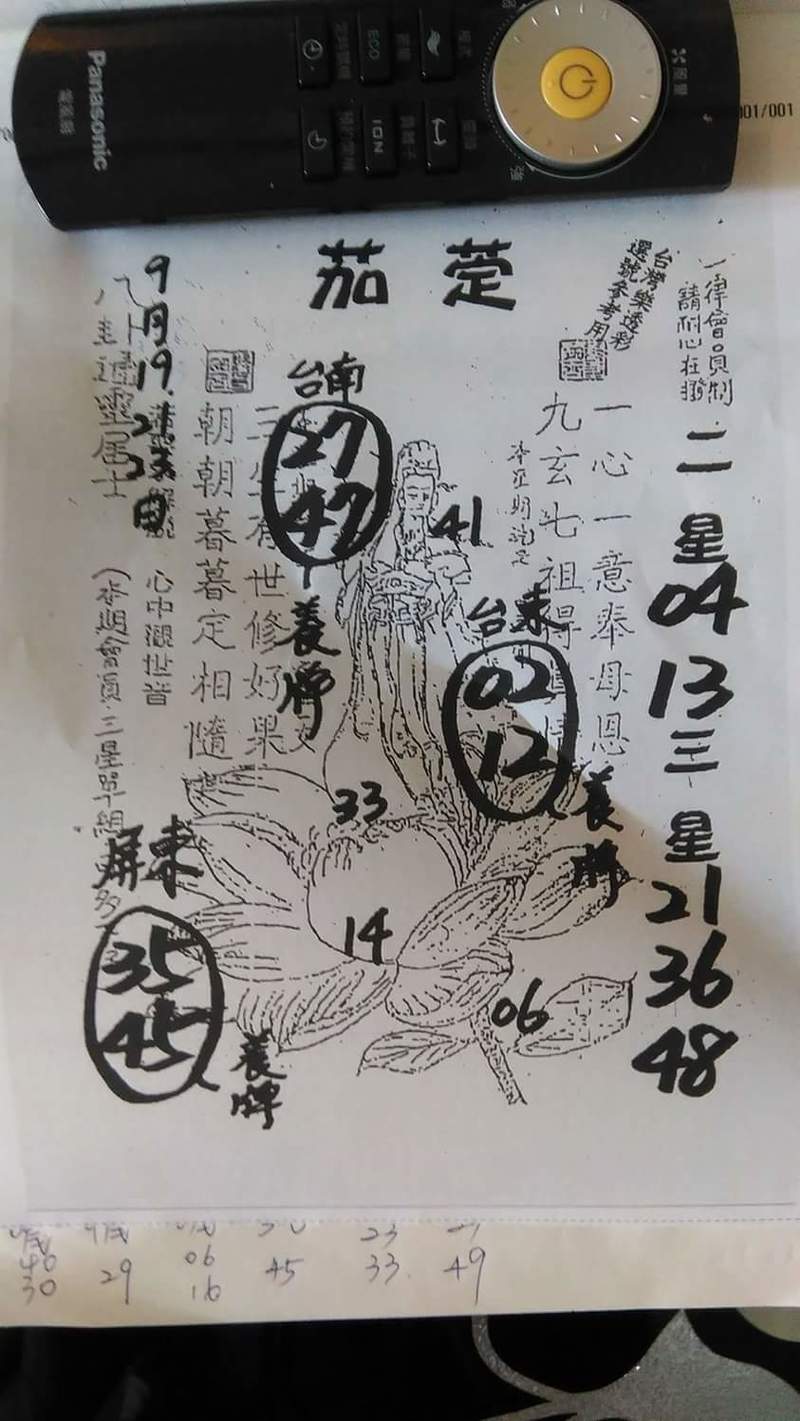 Panasonic
ECO
ION
001/001
茄萣
一律會員制
請耐心在撥
台灣樂透彩
選號參考用
二星
04
13
三星
21
36
48
一心一意奉母恩
九玄七祖得
41
台東
02
12
養牌
台南
27
47
養牌
世修好果
朝朝暮暮定相隨
心中觀世音
9月19.21.23日
靈居士
(本期會員三星單組
屏東
35
45
養牌
33
14
06
40
30
29
06
16
45
23
33.
49